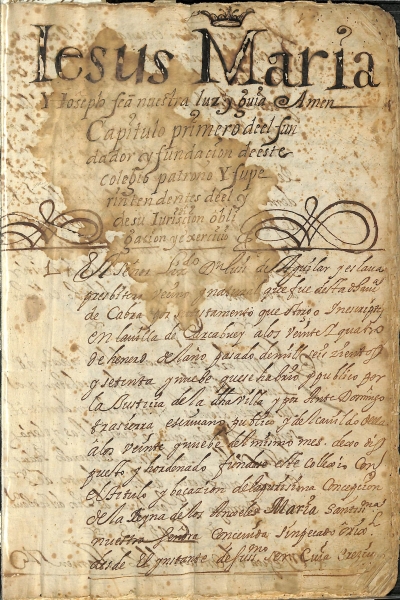 Iesus Maria
Y Joseph sean nuestra luz y guia Amen
Capitulo primero de el fun
dador y fundacion de este
colegio patrono Y supe
rintendentes de el y
de su Iurisicion obli
gacion y exercicio
El Lizdo Dn Luis de Aguilar y eslava
presbitero vezino y natural que fue desta Va
de Cabra por su testamento que otorgo
en la villa de a los veinte I quatro
de henero del año pasado de mil y seis zientos
y setenta y nuebe que se habrio y publico por
la Justicia de la dha villa y por Ante Domingo
escriuano publico y de Cauildo de ella
a los veinte y nuebe del mismo mes dexo dis
puesto y hordenado fundase este Collexio Con
el titulo y bocacion de la purissima Concepcion
de la Reyna de los Angeles Maria Santissima
nuestra Señora Conceuida sin pecado
desde el ynstante de su ser